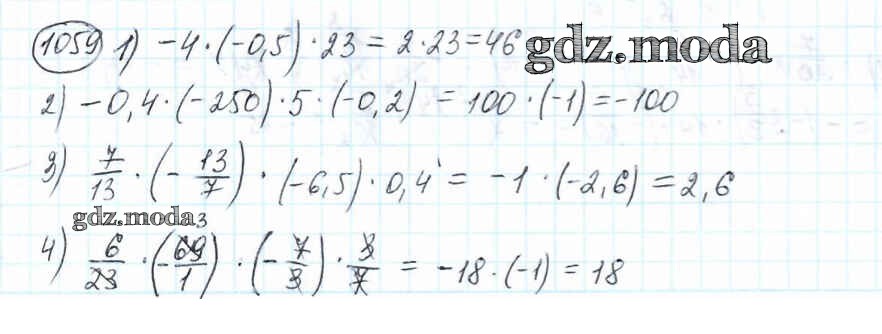 1059 1) -4 · (-0,5) · 23 = 2 · 23 = 46 gdz.moda
2) -0,4 · (-250) · 5 · (-0,2) = 100 · (-1) = -100
3) 7/13 · (-13/7) · (-6,5) · 0,4 = -1 · (-2,6) = 2,6
gdz.moda 3
4) 6/23 · (-69/1) · (-7/3) · 3/7 = -18 · (-1) = 18